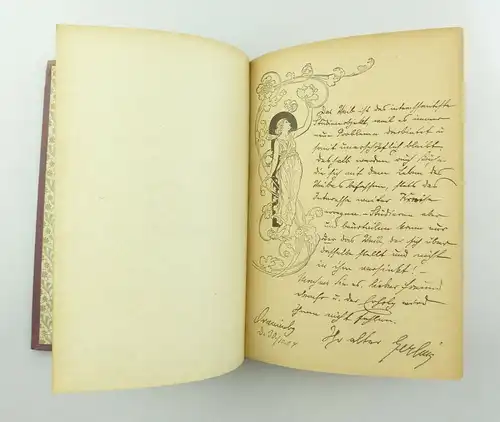 Das Weib ist das interessanteste
Studienobjekt, weil es immer
neue Probleme darbietet u
somit unerschöpflich bleibt,
deshalb werden auch Büche
die sich mit dem Leben des
Weibes befassen, stets das
Interesse weiter Kreise
erregen. – Studieren aber
und beurtheilen kann nur
der das Weib der sich über
dasselbe stellt und nicht
in ihm versinkt! –
Machen Sie es, lieber Freund
danach u. der Erfolg wird
Ihnen nicht fehlen.
Ihr alter